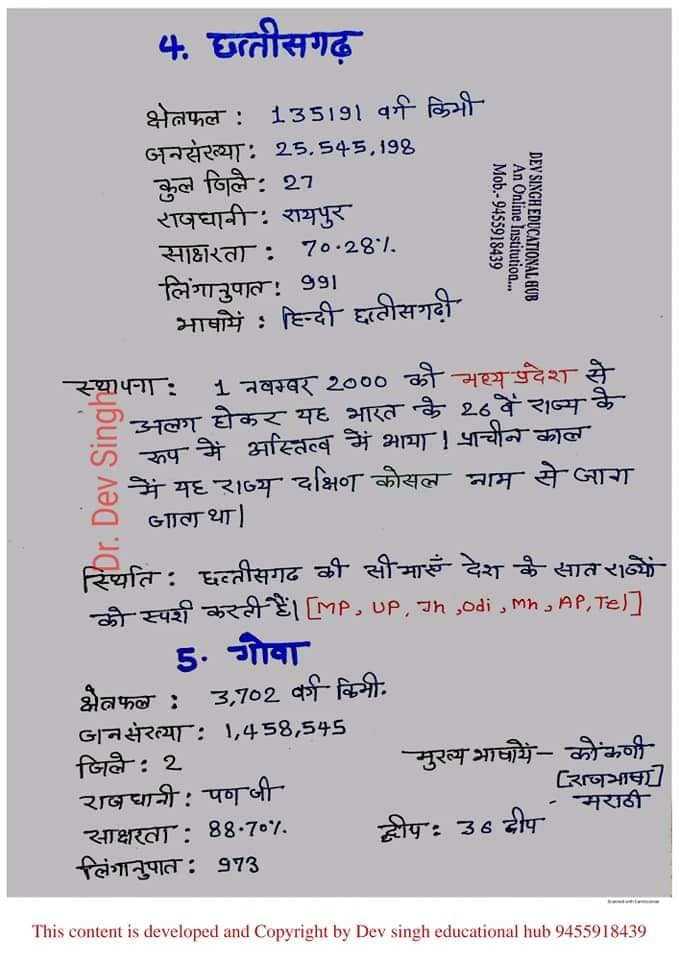 4. छत्तीसगढ़
क्षेत्रफल : 135191 वर्ग किमी
जनसंख्या : 25,545,198
कुल जिले : 27
राजधानी : रायपुर
साक्षरता : 70.28%
लिंगानुपात : 991
भाषायें : हिन्दी छत्तीसगढ़ी
DEV SINGH EDUCATIONAL HUB
An Online Institution...
Mob:- 9455918439
स्थापना : 1 नवम्बर 2000 को मध्य प्रदेश से
अलग होकर यह भारत के 26 वें राज्य के
रूप में अस्तित्व में आया । प्राचीन काल
में यह राज्य दक्षिण कोसल नाम से जाना
जाता था |
Dr. Dev Singh
स्थिति : छत्तीसगढ की सीमाएँ देश के सात राज्यों
को स्पर्श करती हैं। [MP, UP, Jh, Odi, Mh, AP, Tel]
5. गोवा
क्षेत्रफल : 3,702 वर्ग किमी.
जनसंख्या : 1,458,545
जिले : 2
राजधानी : पणजी
साक्षरता : 88.70%
लिंगानुपात : 973
मुख्य भाषायें - कोंकणी
[राजभाषा]
- मराठी
द्वीप : 36 द्वीप
Scanned with CamScanner
This content is developed and Copyright by Dev singh educational hub 9455918439